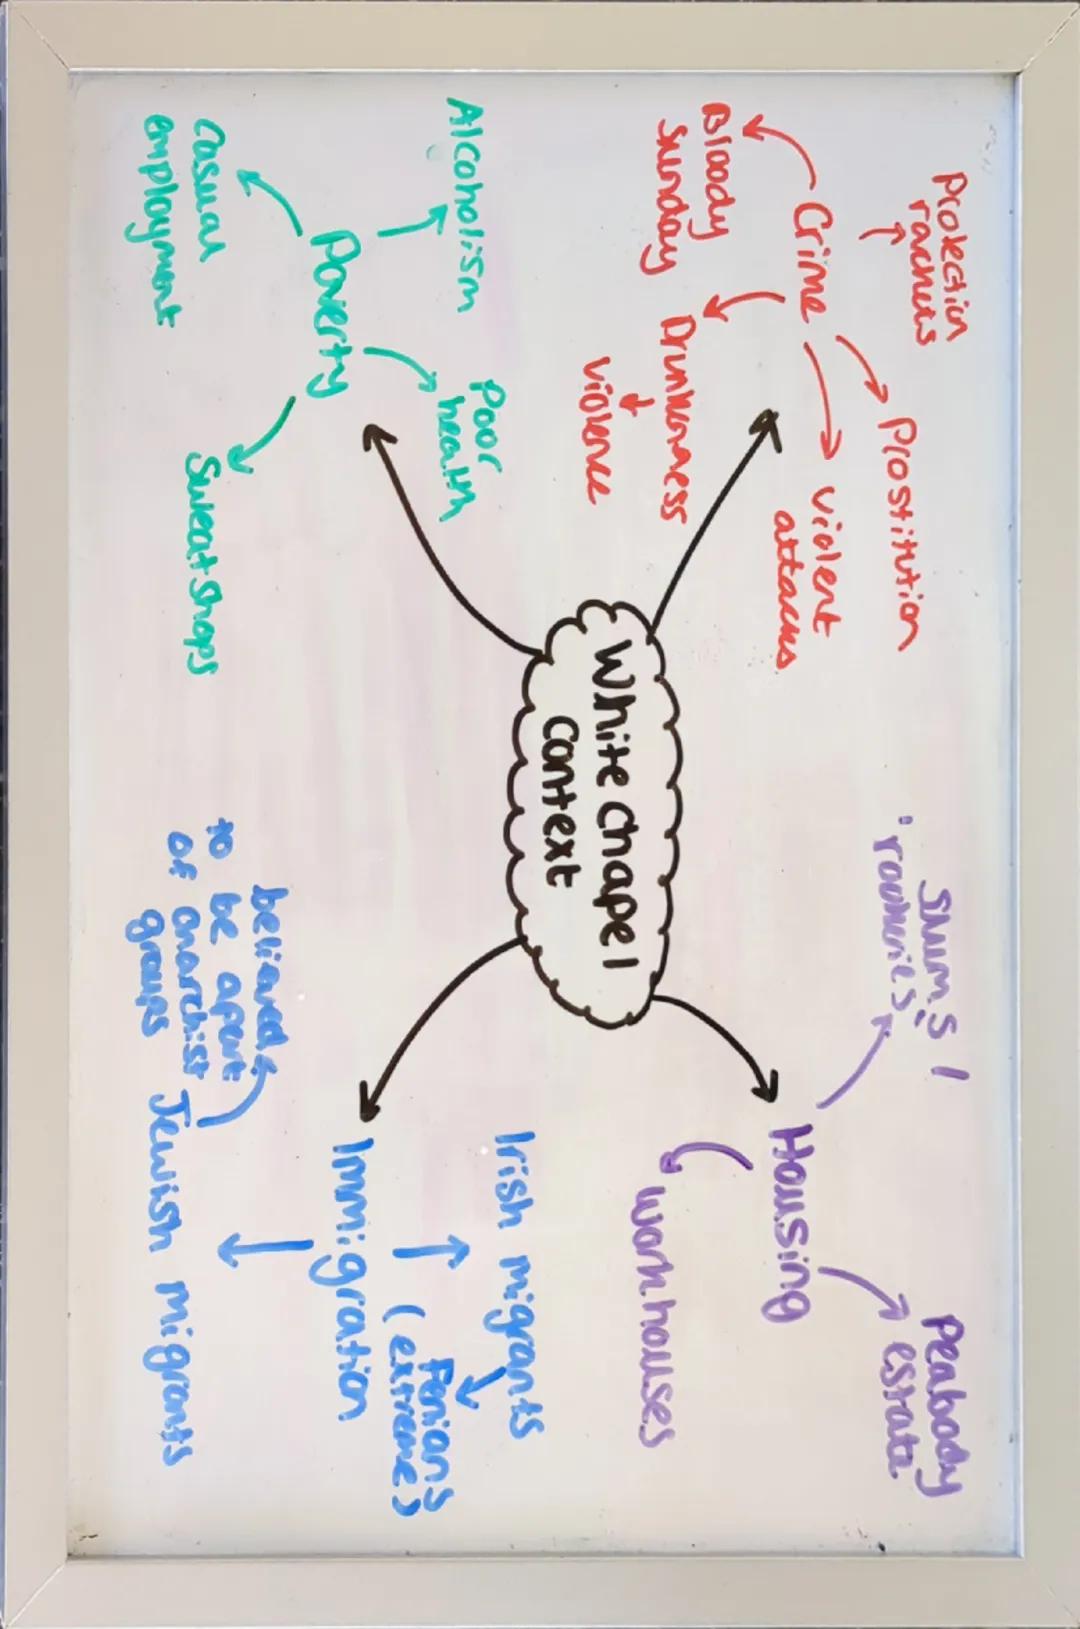 White chapel
context
Crime
Protection
rackets
Prostitution
violent
attacks
Bloody
Sunday
Drunkenness
violence
Housing
Slums /
'rookeries'
Peabody
estate
workhouses
Poverty
Alcoholism
Poor
health
casual
employment
Sweatshops
Immigration
Irish migrants
Fenians
(extreme)
Jewish migrants
believed
to be apart
of anarchist
groups